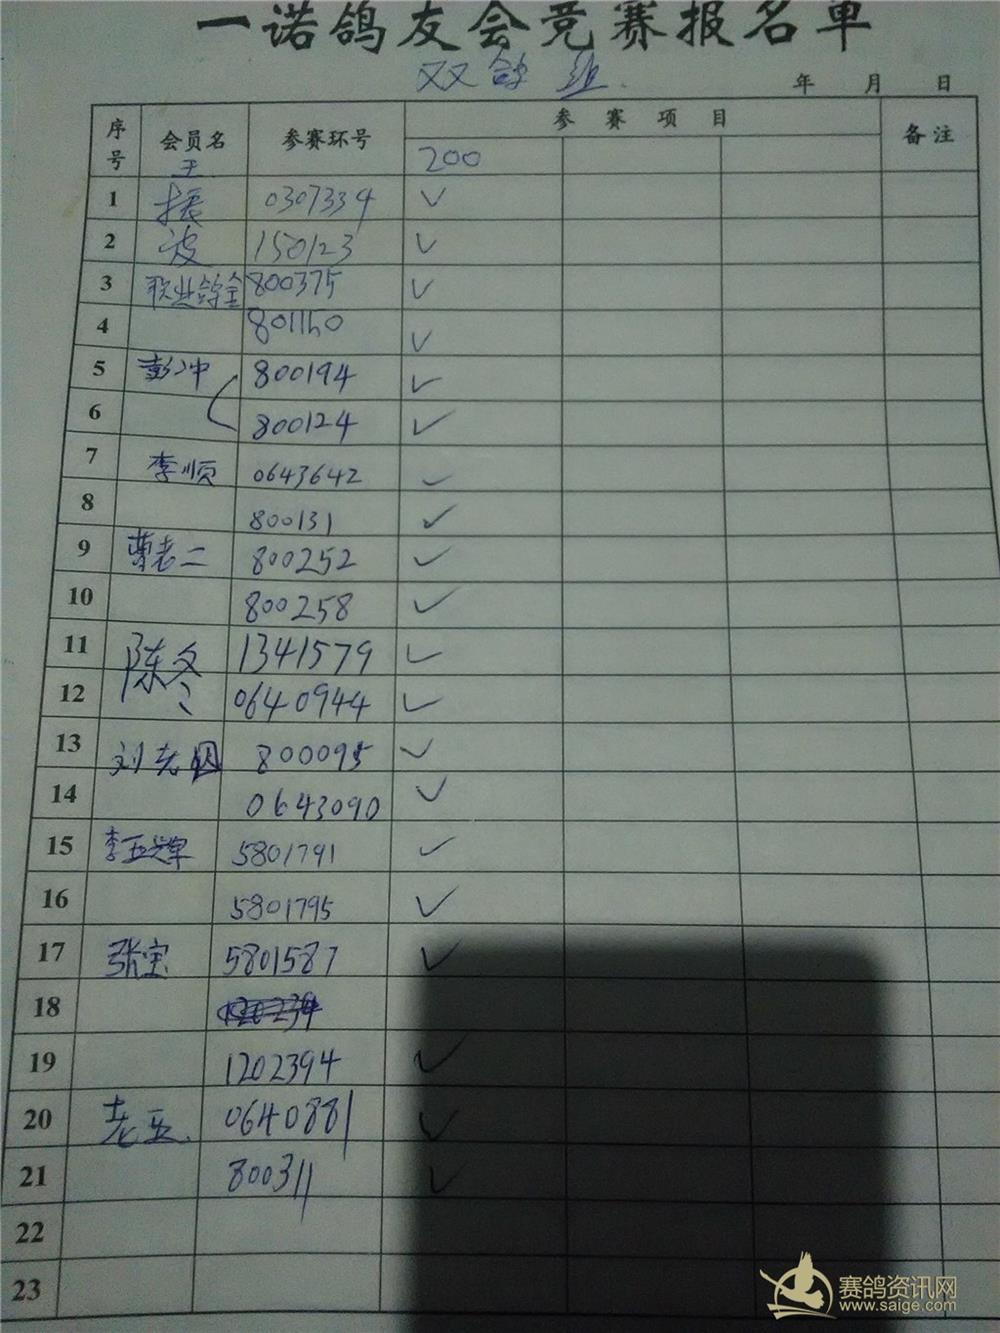 一诺鸽友会竞赛报名单
双鸽组
年 月 日
序号 会员名 参赛环号 参赛项目 备注
200
1 王振 0307334 ✓
2 波 150123 ✓
3 职业鸽舍 800375 ✓
4 801160 ✓
5 彭冲 800194 ✓
6 800124 ✓
7 李顺 0643642 ✓
8 800131 ✓
9 曹老二 800252 ✓
10 800258 ✓
11 陈冬 1341579 ✓
12 0640944 ✓
13 刘老四 800095 ✓
14 0643090 ✓
15 李亚辉 5801791 ✓
16 5801795 ✓
17 张宝 5801587 ✓
18
19 1202394 ✓
20 老五 0640881 ✓
21 800311 ✓
22
23
赛鸽资讯网
www.saige.com